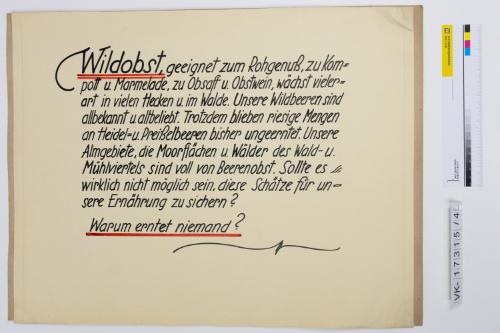 Wildobst, geeignet zum Rohgenuß, zu Kom=
pott u. Marmelade, zu Obsaft u. Obstwein, wächst vieler=
art in vielen Hecken u. im Walde. Unsere Wildbeeren sind
allbekannt u. allbeliebt. Trotzdem blieben riesige Mengen
an Heidel= u. Preißelbeeren bisher ungeerntet. Unsere
Almgebiete, die Moorflächen u. Wälder des Wald= u.
Mühlviertels sind voll von Beerenobst. Sollte es
wirklich nicht möglich sein, diese Schätze für un=
sere Ernährung zu sichern?
Warum erntet niemand?
VK-17315/4